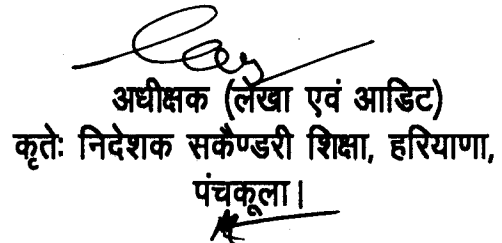 अधीक्षक (लेखा एवं आडिट)
कृतेः निदेशक सकैण्डरी शिक्षा, हरियाणा,
पंचकूला।